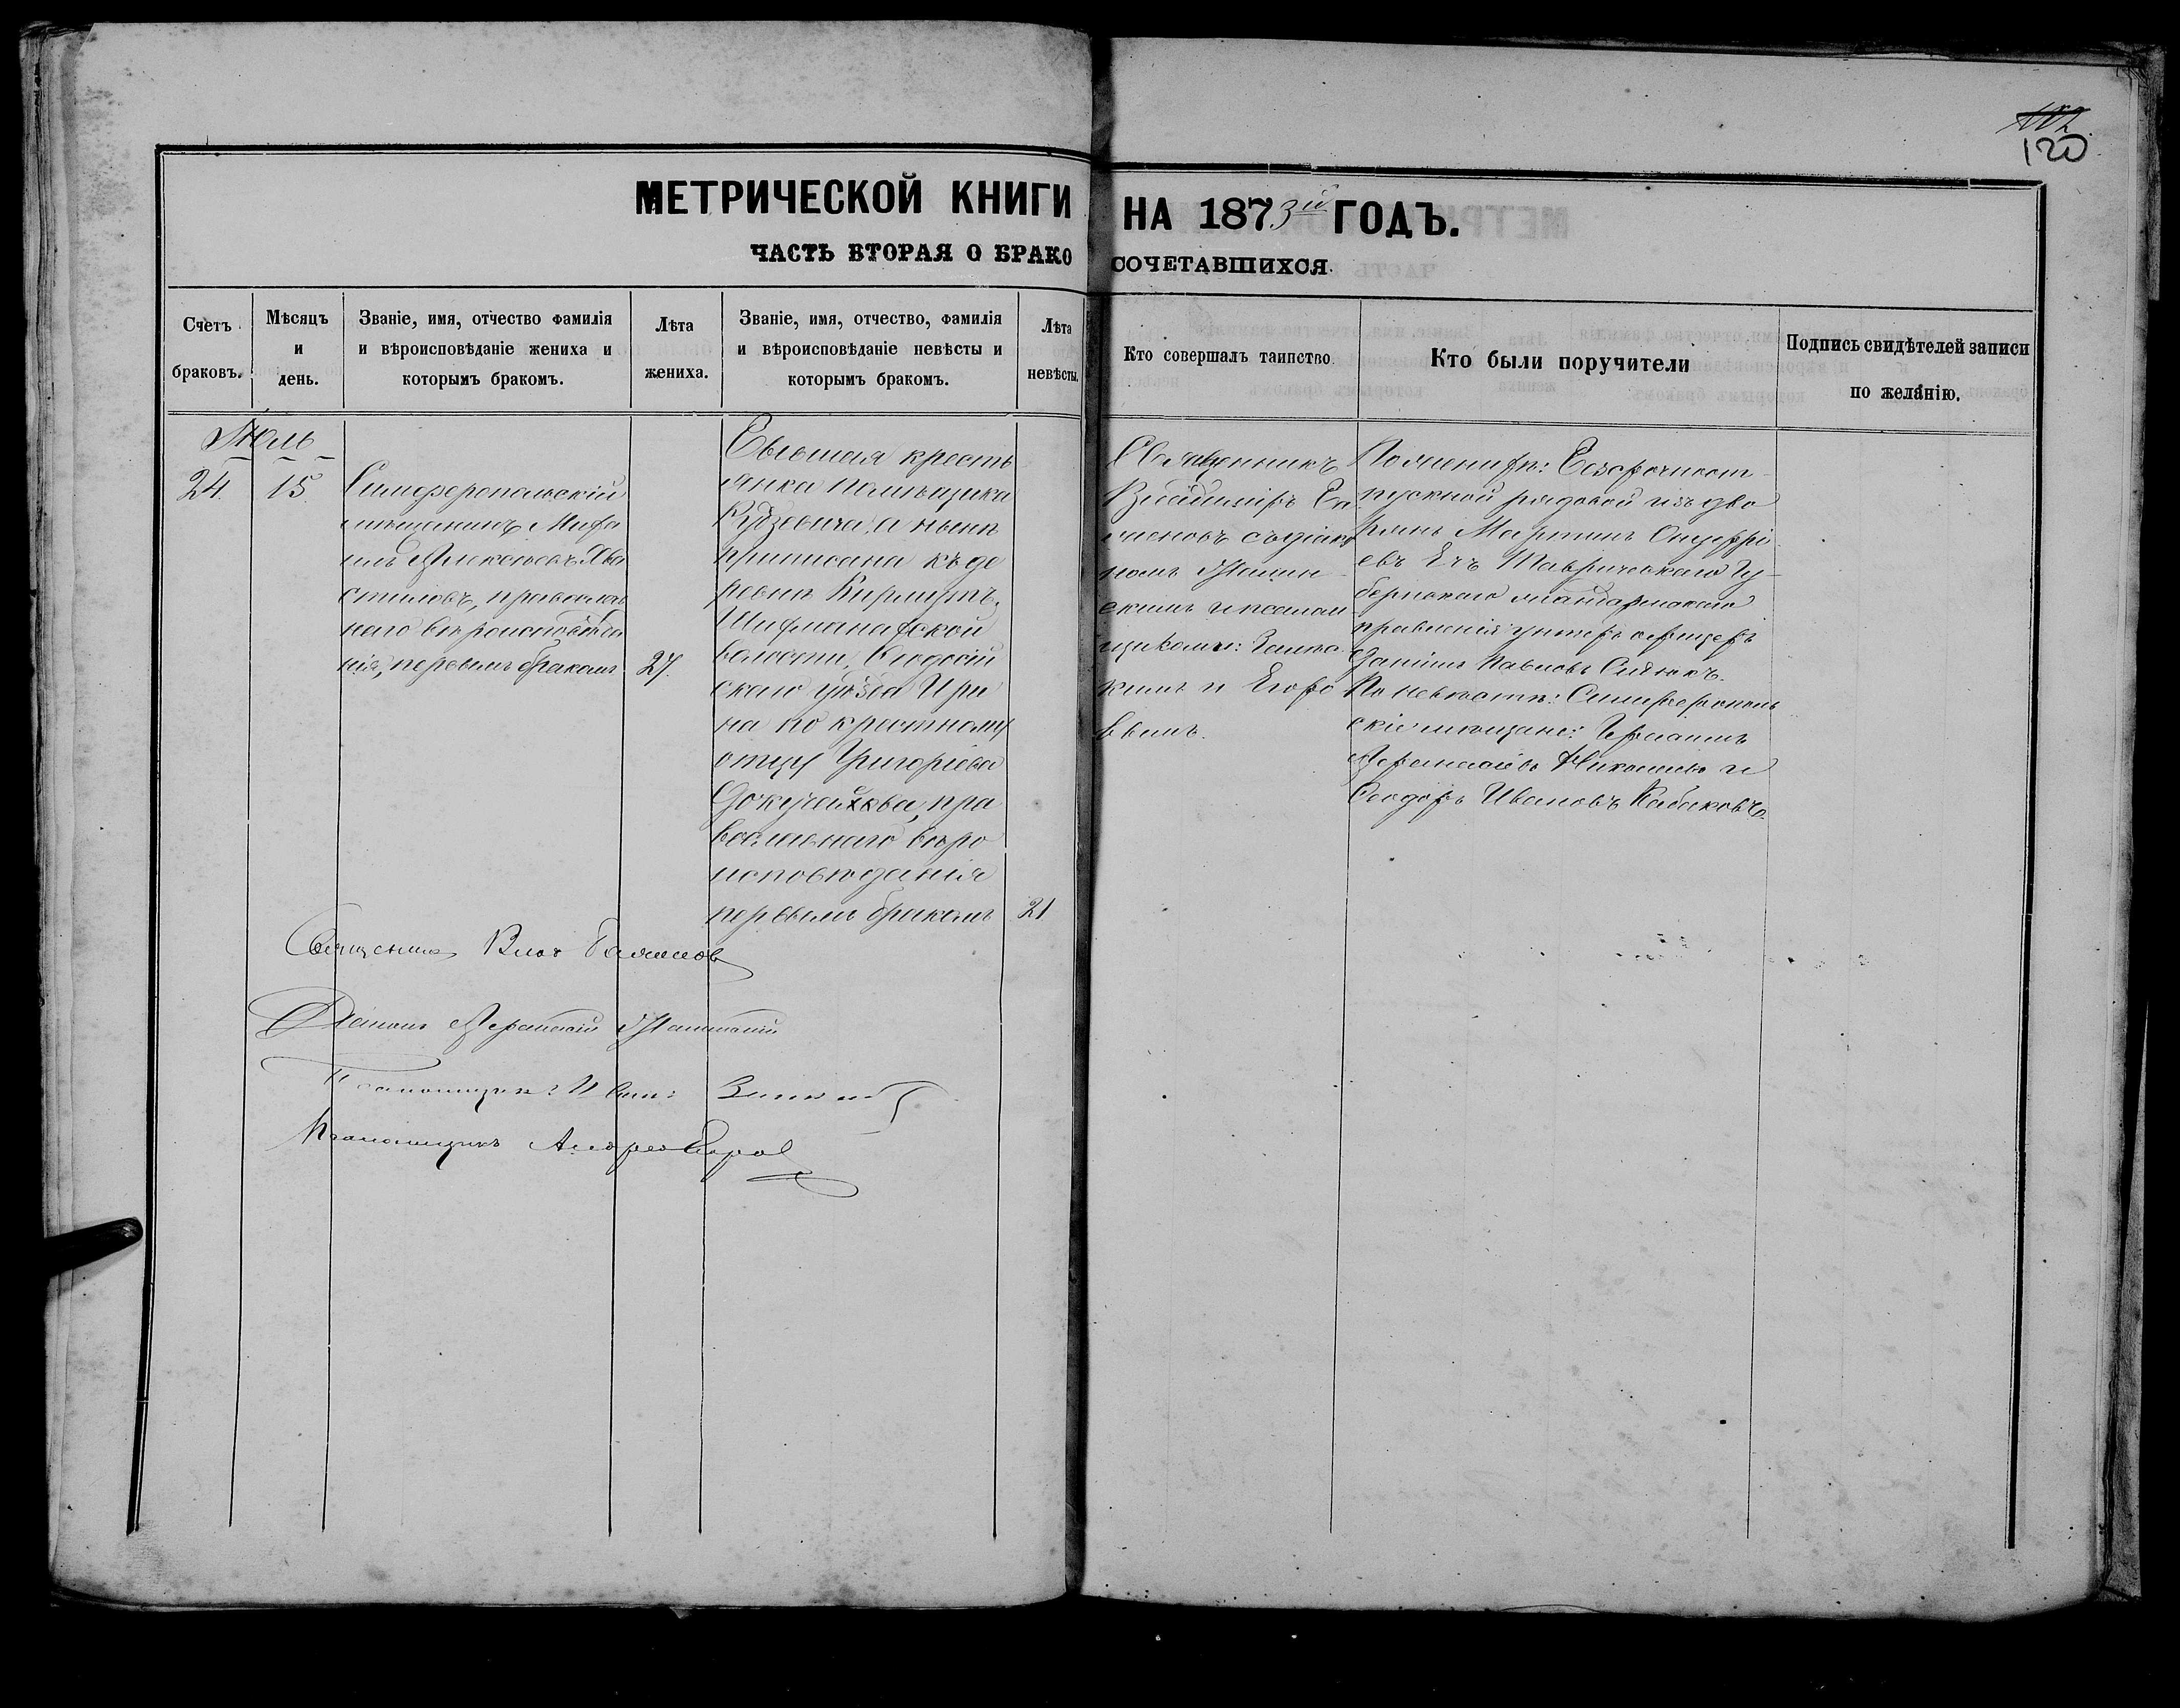 112
120
МЕТРИЧЕСКОЙ КНИГИ НА 1873й ГОДЪ.
ЧАСТЬ ВТОРАЯ О БРАКОСОЧЕТАВШИХСЯ.
Счетъ браковъ.
Мѣсяцъ и день.
Званіе, имя, отчество фамилія и вѣроисповѣданіе жениха и которымъ бракомъ.
Лѣта жениха.
Званіе, имя, отчество, фамилія и вѣроисповѣданіе невѣсты и которымъ бракомъ.
Лѣта невѣсты.
Кто совершалъ таинство.
Кто были поручители
Подпись свидѣтелей записи по желанію.
Іюль
24.
15.
Симферопольскій
мѣщанинъ
Алексѣевъ Хва
стиловъ, православ
наго вѣроисповѣда
нія, первымъ бракомъ
27.
Бывшая кресть
янка помѣщика
а нынѣ
приписана къ де
ревнѣ
волости, Ѳеодосій
скаго уѣзда Ири
на по крестному
отцу Григоріева
Докучаева, пра
вославнаго вѣро
исповѣданія
первымъ бракомъ
21
Священникъ
Владиміръ Ба
ляновъ съ діако
номъ
скимъ и псалом
щиками: Зенке
and
вымъ.
По женихѣ: Безсрочноот
пускной рядовой изъ дво
рянъ Мартинъ Онуфрі
евъ Таврическаго Гу
бернскаго жандармскаго
правленія унтеръ офицеръ
Даніилъ Павловъ
По невѣстѣ: Симферополь
скіе мѣщане: Германъ
Аѳанасіевъ Николаевъ и
Ѳеодоръ Ивановъ Кабаковъ.
Священникъ Влад Баляновъ
Діаконъ Аѳанасій
Псаломщикъ: Иван:
Псаломщикъ Андрей Егоров